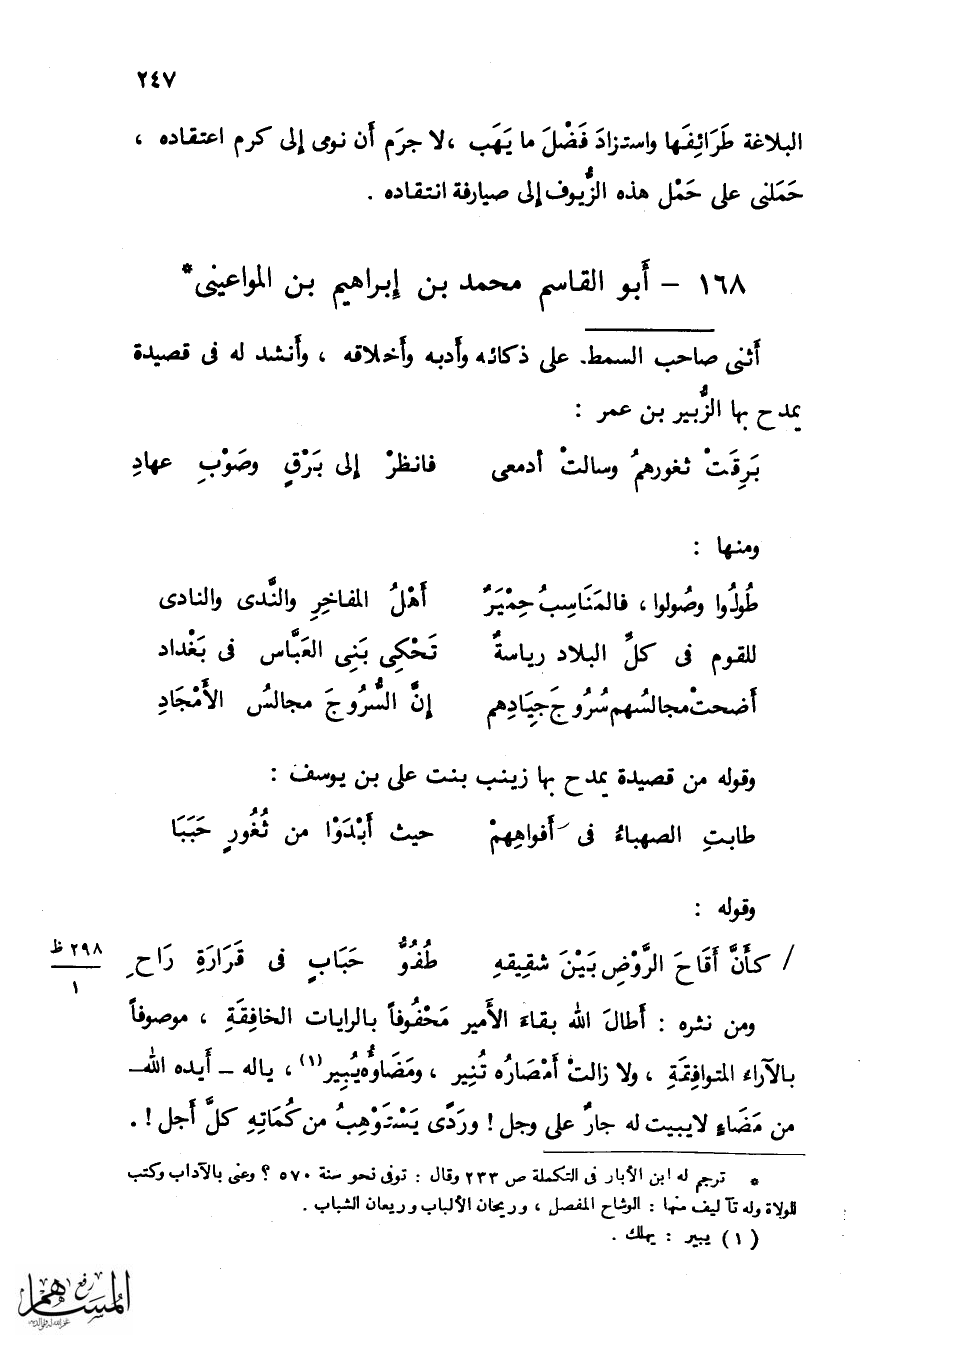 ٢٤٧
البلاغة طَرَائِفَها واستزادَ فَضْلَ ما يَهَب ، لا جرَم أن نومى إلى كرم اعتقاده ،
حَمَلنى على حَمْل هذه الزُّيوف إلى صيارفة انتقاده .
١٦٨ – أبو القاسم محمد بن إبراهيم بن المواعينى*
أثنى صاحب السمط. على ذكائه وأدبه وأخلاقه ، وأنشد له فى قصيدة
يمدح بها الزُّبير بن عمر :
بَرِقَتْ ثغورهمُ وسالتْ أدمعى فانظرْ إلى بَرْقٍ وصَوْبِ عهادِ
ومنها :
طُولُوا وصُولوا ، فالمَنَاسِبُ حِمْيَرٌ أَهْلُ المفاخِرِ والنَّدى والنادى
للقوم فى كلِّ البلاد رياسةٌ تَحْكِى بَنِى العَبَّاس فى بَغْداد
أضحتْ مجالسُهم سُرُوجَ جِيَادِهم إنَّ السُّرُوجَ مجالسُ الأَمْجَادِ
وقوله من قصيدة يمدح بها زينب بنت على بن يوسف :
طابتِ الصهباءُ فى أفواهِهمْ حيث أَبْدَوْا من ثُغُورٍ حَبَبَا
وقوله :
/ كأنَّ أقَاحَ الرَّوْضِ بَيْنَ شقيقهِ طُفُوُّ حَبَابٍ فى قَرَارَةِ رَاحِ
٢٩٨ ظ
١
ومن نثره : أطالَ الله بقاءَ الأمير مَحْفُوفاً بالرايات الخافِقَةِ ، موصوفاً
بالآراء المتوافِقَةِ ، ولا زالتْ أمْصَارُه تُنِير ، ومَضَاؤُه يُبِير(١) ، ياله – أيده الله–
من مَضَاءٍ لايبيت له جارٌ على وجل ! ورَدًى يَسْتَوْهِبُ من كُمَاتِهِ كلَّ أجل ! .
* ترجم له ابن الأبار فى التكملة ص ٢٣٣ وقال : توفى نحو سنة ٥٧٠ ؟ وعنى بالآداب وكتب
للولاة وله تآ ليف منها : الوشاح المفصل ، وريحان الألباب وريعان الشباب .
(١) يبير : يهلك .
رفع
المساهم